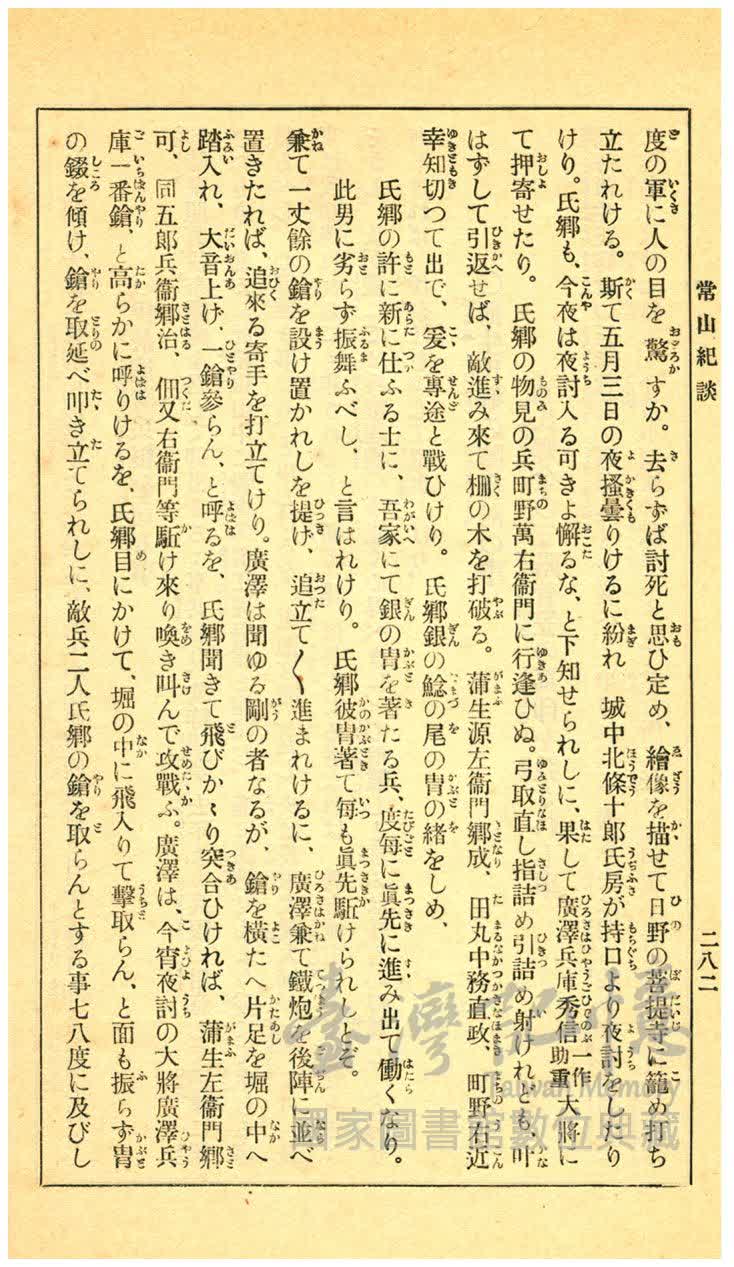 常山紀談
二八二
度の軍に人の目を驚すか。去らずば討死と思ひ定め、繪像を描せて日野の菩提寺に籠め打ち
立たれける。斯て五月三日の夜搔曇りけるに紛れ　城中北條十郎氏房が持口より夜討をしたり
けり。氏郷も、今夜は夜討入る可きよ懈るな、と下知せられしに、果して廣澤兵庫秀信一作助重大將に
て押寄せたり。氏郷の物見の兵町野萬右衞門に行逢ひぬ。弓取直し指詰め引詰め射けれども、叶
はずして引返せば、敵進み來て柵の木を打破る。蒲生源左衞門郷成、田丸中務直政、町野右近
幸知切つて出で、爰を專途と戰ひけり。氏郷銀の鯰の尾の冑の緒をしめ、
氏郷の許に新に仕ふる士に、吾家にて銀の冑を著たる兵、度每に眞先に進み出て働くなり。
此男に劣らず振舞ふべし、と言はれけり。氏郷彼冑著て每も眞先駈けられしとぞ。
兼て一丈餘の鎗を設け置かれしを提げ、追立て〱進まれけるに、廣澤兼て鐵炮を後陣に並べ
置きたれば、追來る寄手を打立てけり。廣澤は聞ゆる剛の者なるが、鎗を橫たへ片足を堀の中へ
踏入れ、大音上げ、一鎗參らん、と呼るを、氏郷聞きて飛びかゝり突合ひければ、蒲生左衞門郷
可、同五郎兵衞郷治、佃又右衞門等駈け來り喚き叫んで攻戰ふ。廣澤は、今宵夜討の大將廣澤兵
庫一番鎗、と高らかに呼りけるを、氏郷目にかけて、堀の中に飛入りて擊取らん、と面も振らず冑
の錣を傾け、鎗を取延べ叩き立てられしに、敵兵二人氏郷の鎗を取らんとする事七八度に及びし
臺灣記憶
Taiwan Memory
國家圖書館數位典藏